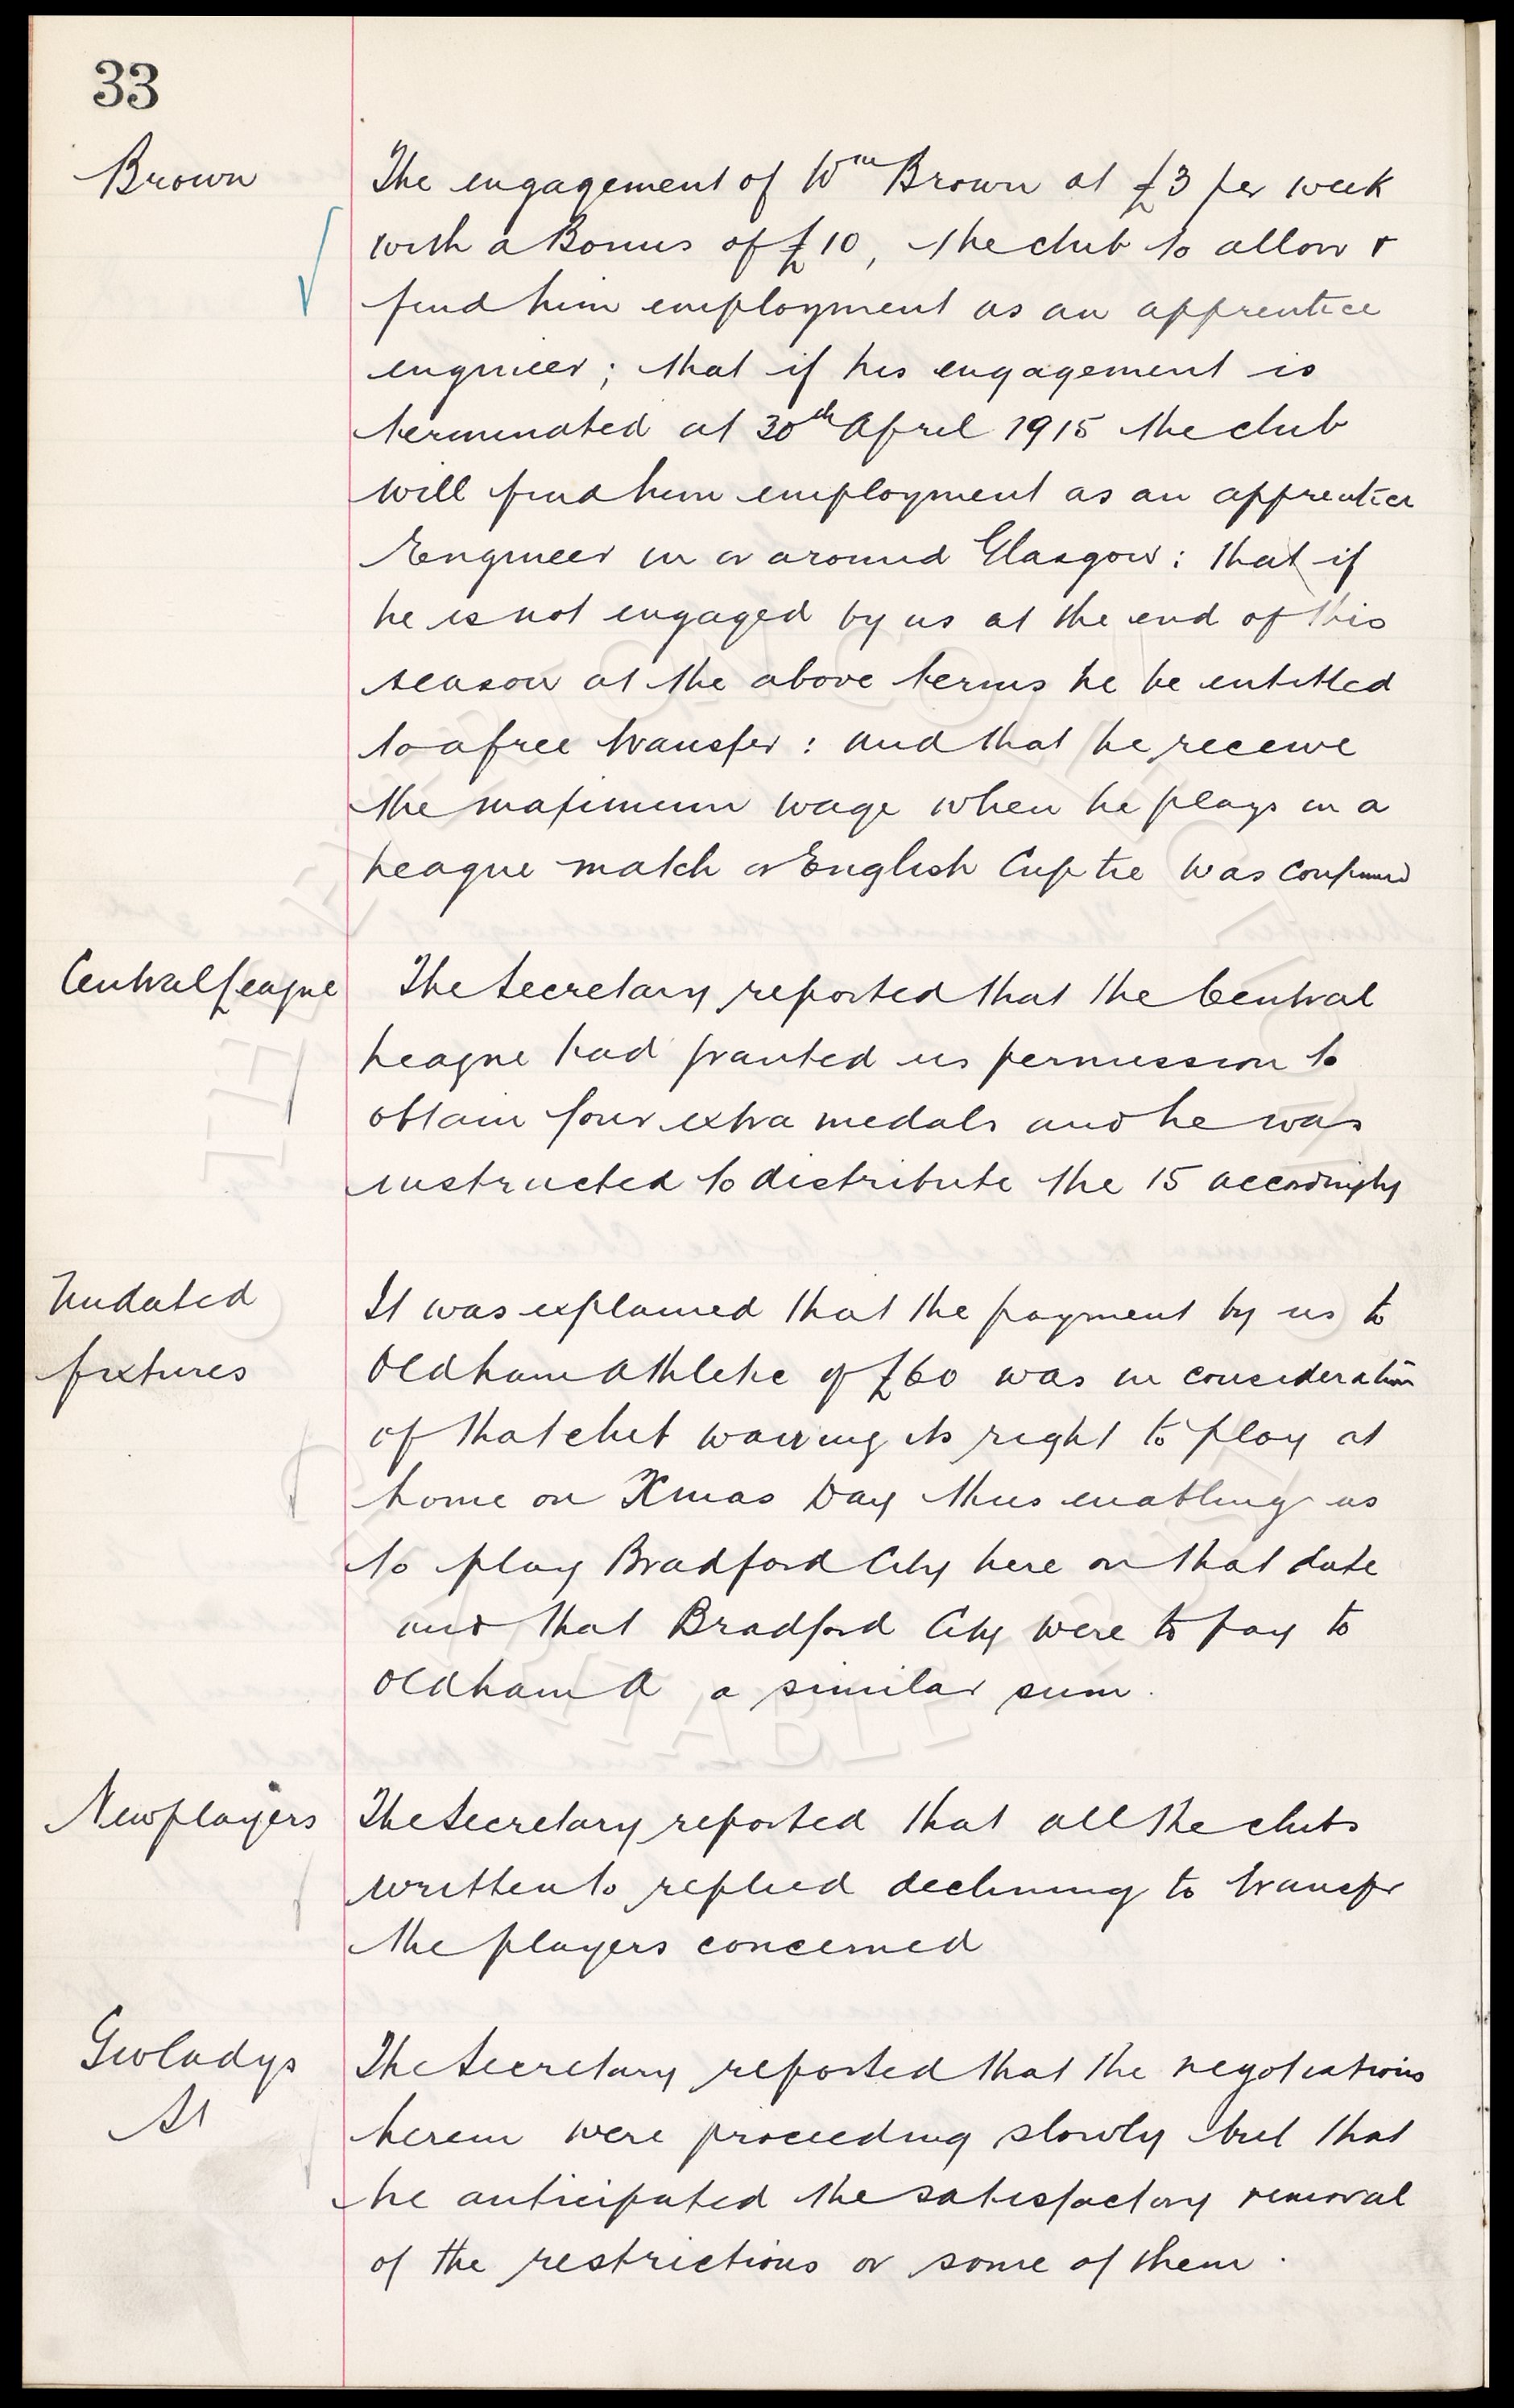 33
Brown
The engagement of Wm Brown at £3 per week
with a Bonus of £10, the club to allow &
find him employment as an apprentice
engineer; that if his engagement is
terminated at 30th April 1915 the club
will find him employment as an apprentice
Engineer in or around Glasgow: that if
he is not engaged by us at the end of this
season at the above terms he be entitled
to a free transfer: and that he receive
the maximum wage when he plays in a
League match or English Cup tie was confirmed
Central League
The Secretary reported that the Central
League had granted us permission to
obtain four extra medals and he was
instructed to distribute the 15 accordingly
Undated
fixtures
It was explained that the payment by us to
Oldham Athletic of £60 was in consideration
of that club waiving its right to play at
home on Xmas Day thus enabling us
to play Bradford City here on that date
and that Bradford City were to pay to
Oldham A a similar sum.
New players
The Secretary reported that all the clubs
written to replied declining to transfer
the players concerned
Gwladys
St
The Secretary reported that the negotiations
herein were proceeding slowly but that
he anticipated the satisfactory removal
of the restrictions or some of them.